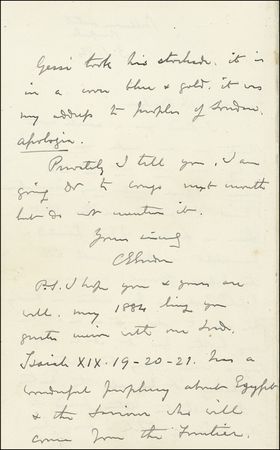 Gessi took his stockade. it is
in a cover blue & gold. it was
my address to peoples of Soudan.
apologies.
Privately I tell you, I am
going DV to Congo next month
but do not mention it.
Yours sincerely
CEGordon
P.S. I hope you & yours are
well. may 1884 bring you
greater union with our Lord.
Isaiah XIX. 19-20-21. has a
wonderful prophecy about Egypt
& the Saviour who will
come from the frontier.